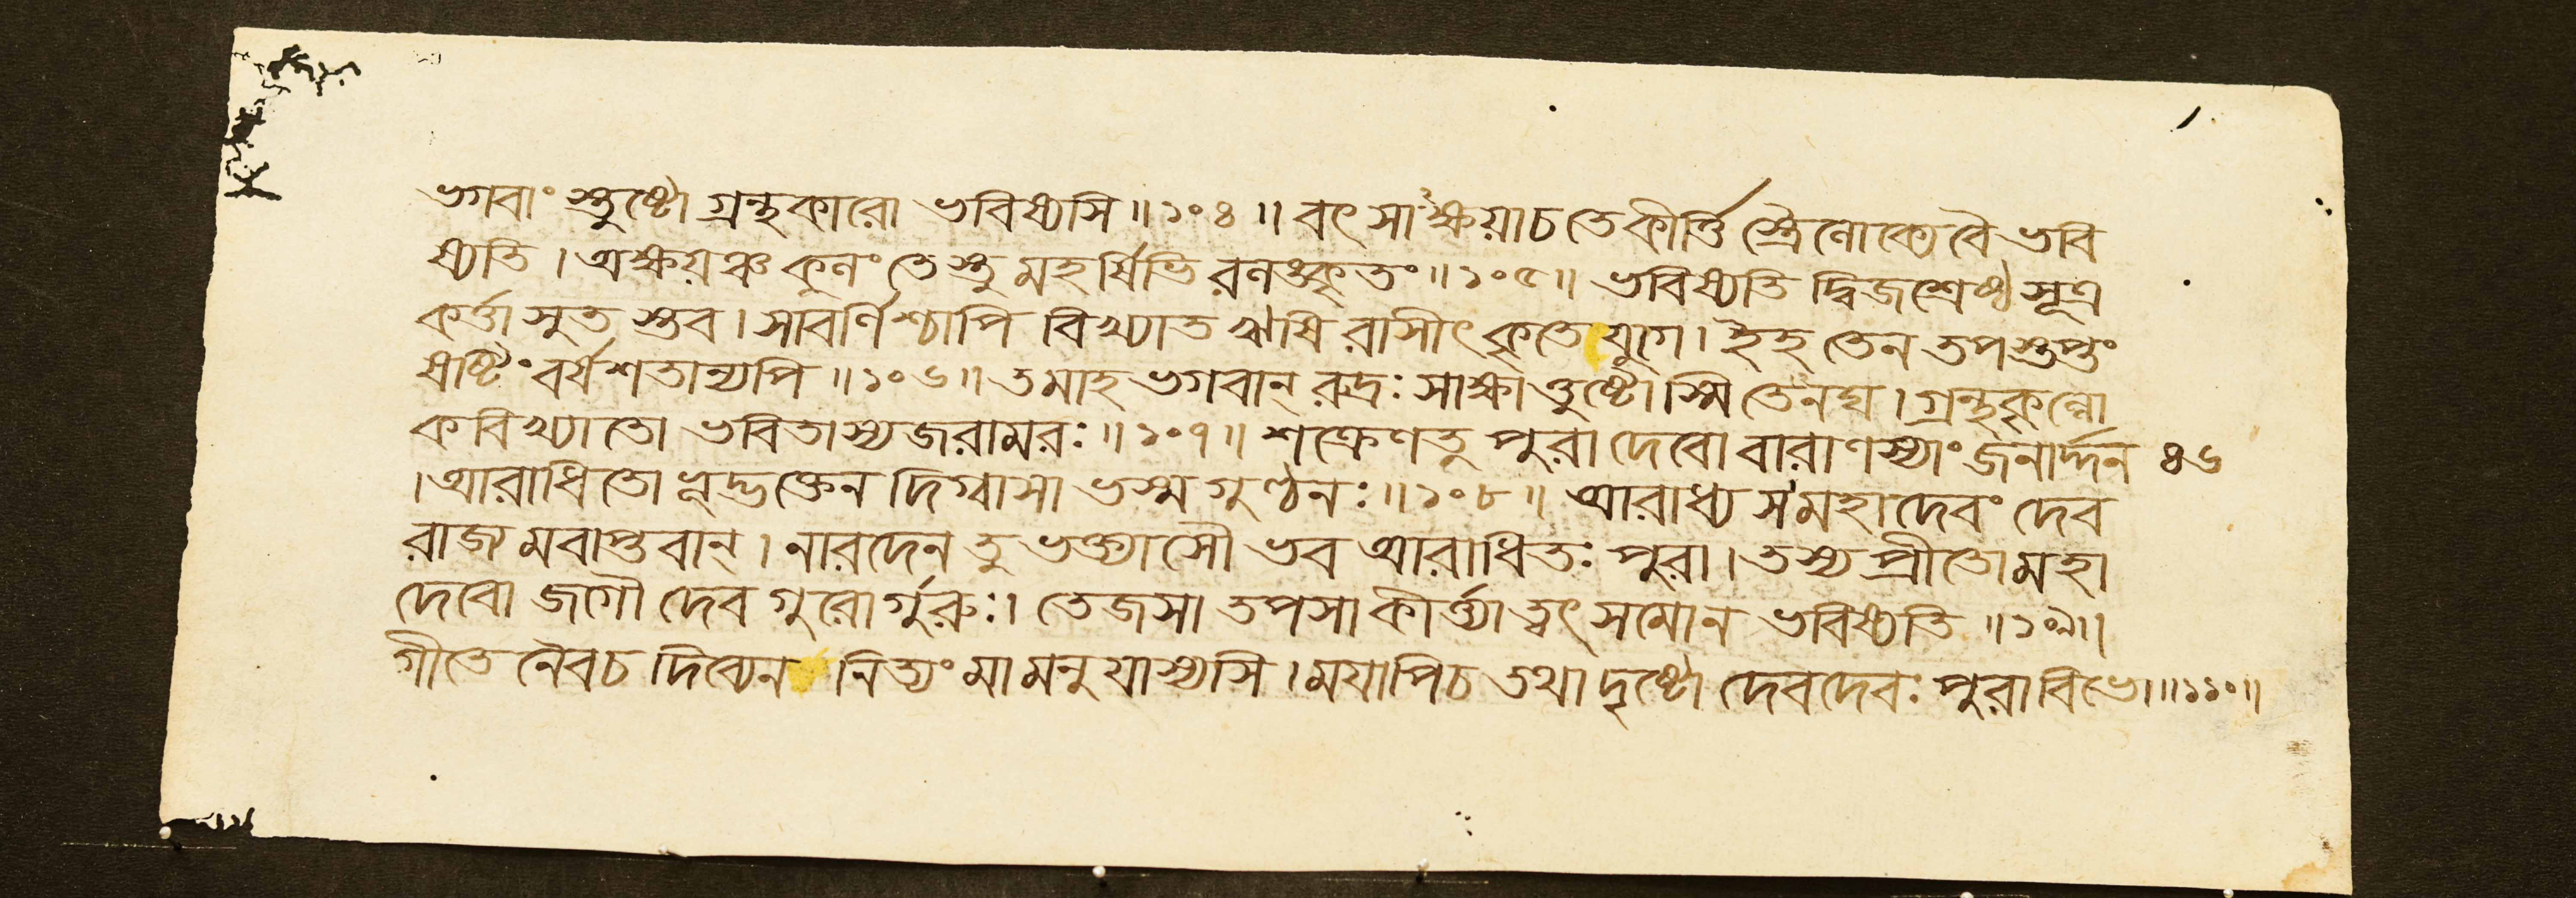 ভগবাং স্তুষ্টো গ্রন্থকারো ভবিষ্যসি॥১০৪॥ বৎ সাক্ষয়াচতে কীর্ত্তি স্ত্রৈলোক্যেবৈ ভবি
ষ্যতি। অক্ষয়ঞ্চ কুলং তেস্তু মহর্ষিভি রলঙ্কৃতং॥১০৫॥ ভবিষ্যতি দ্বিজশ্রেষ্ঠ সূত্র
কর্ত্তা সুত স্তব। সাবর্ণিশ্চাপি বিখ্যাত ঋষি রাসীৎ কৃতে যুগে। ইহ তেন তপস্তপ্তং
ষষ্টিং বর্ষশতান্যপি॥১০৬॥ তমাহ ভগবান্ রুদ্রঃ সাক্ষাত্তুষ্টোস্মি তেনঘ। গ্রন্থকৃল্লো
কবিখ্যাতো ভবিতাস্যজরামরঃ॥১০৭॥ শক্রেণতু পুরা দেবো বারাণস্যাং জনার্দ্দন ৪৬
।আরাধিতো ভূদ্ভক্তেন দিগ্বাসা ভস্মগুণ্ঠনঃ॥১০৮॥ আরাধ্য সমহাদেবং দেব
রাজ্য মবাপ্তবান্। নারদেন তু ভক্ত্যাসৌ ভব আরাধিতঃ পুরা। তস্য প্রীতোমহা
দেবো জগৌ দেব গুরোর্গুরুঃ। তেজসা তপসা কীর্ত্ত্যা ত্বৎ সমোন ভবিষ্যতি॥১০৯॥
গীতে নৈবচ দিব্যেন নিত্যং মা মনুযাস্যসি। ময়াপিচ তথা দৃষ্টো দেবদেবঃ পুরাবিভো॥১১০॥